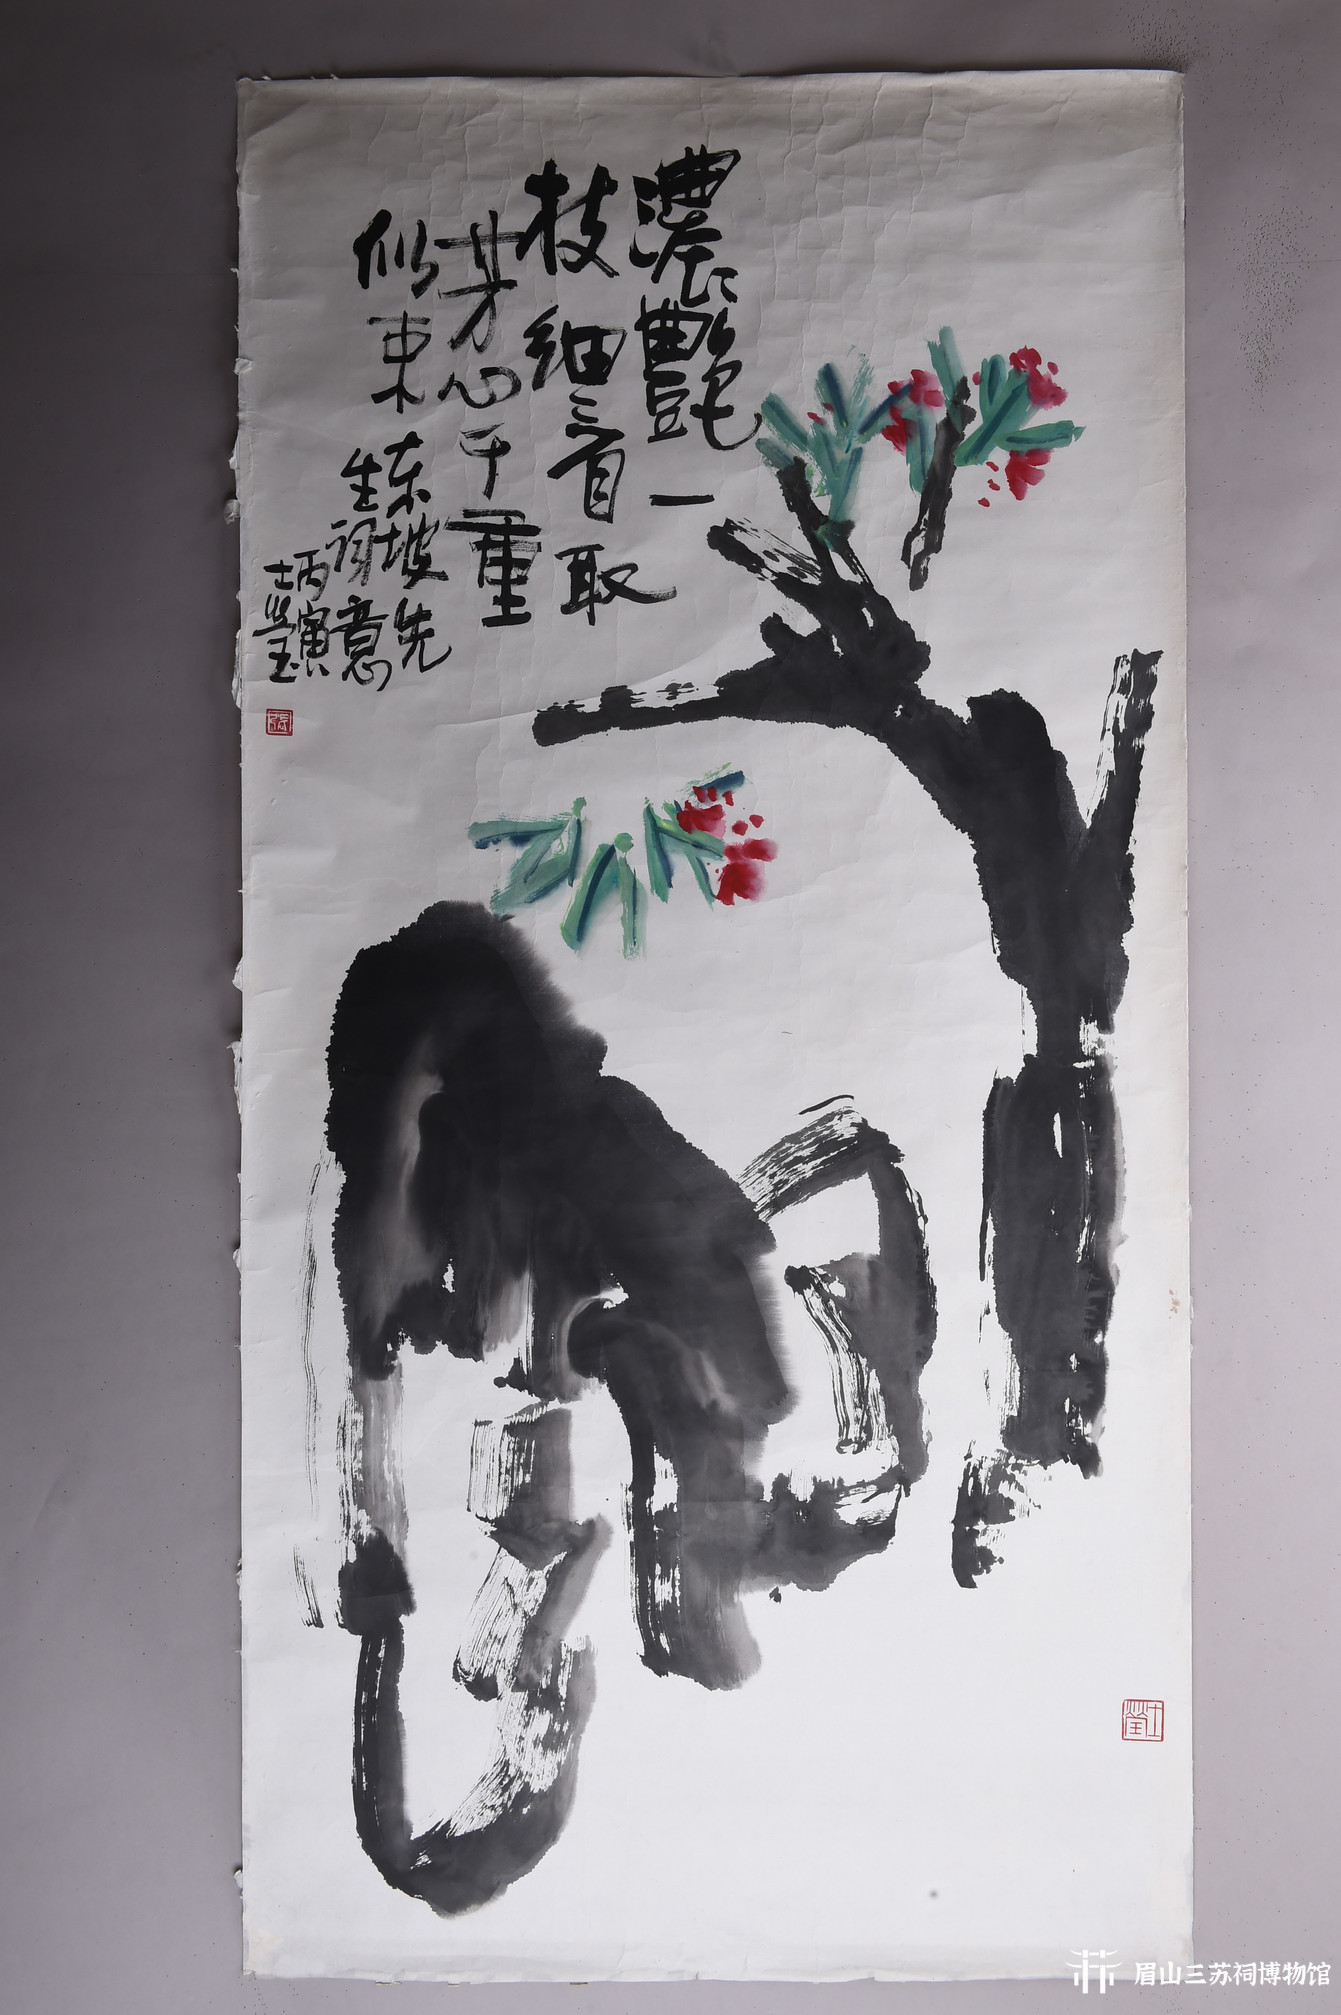 濃艷一
枝細看取
芳心千重
似束
东坡先
生词意
丙寅
士莹
張
士瑩
眉山三苏祠博物馆